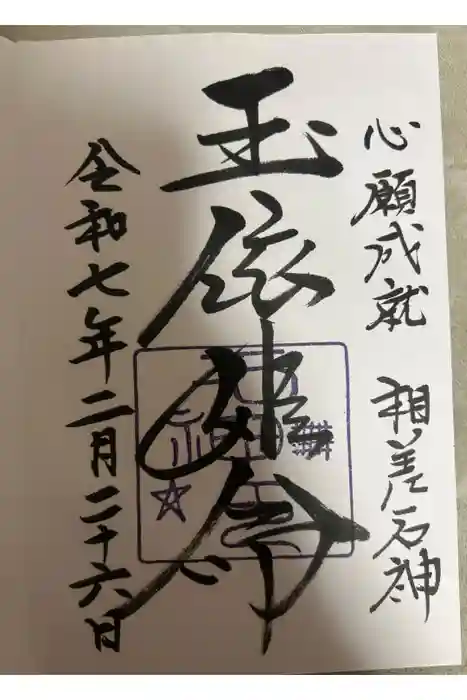 心願成就 相差石神
玉依姫命
令和七年二月二十六日